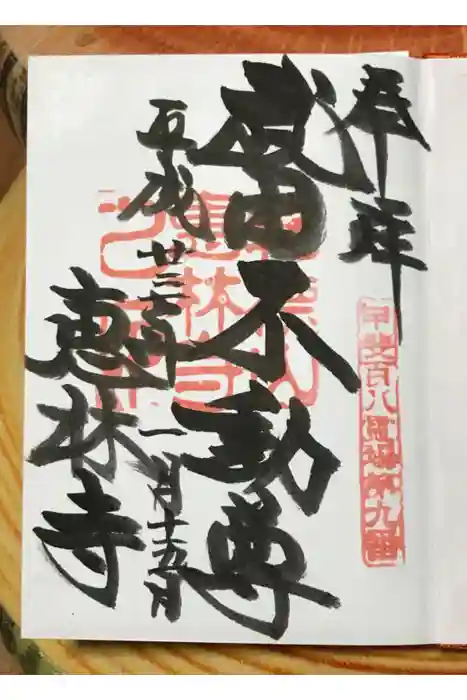 奉拝
甲斐百八霊場第九番
武田不動尊
平成廿三年一月十五日
恵林寺
乾徳山
恵林寺